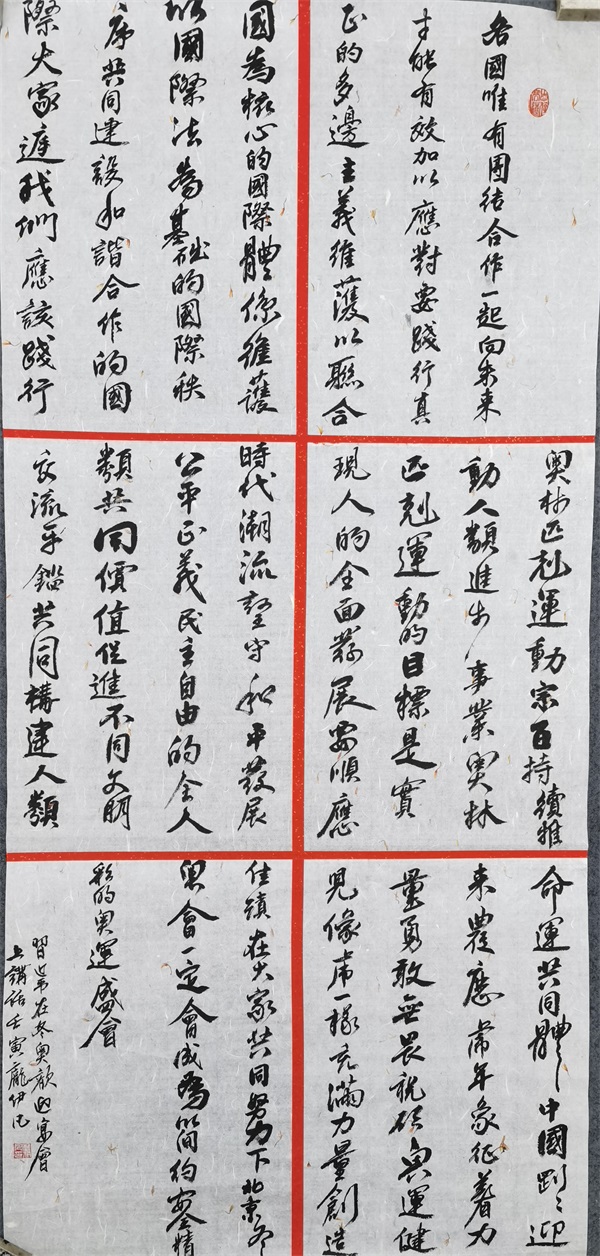 各國唯有團結合作一起向未來
才能有效加以應對要踐行真
正的多邊主義維護以聯合
國為核心的國際體係維護
以國際法為基礎的國際秩
序共同建設和諧合作的國
際大家庭我們應該踐行
奧林匹剋運動宗旨持續推
動人類進步事業奧林
匹剋運動的目標是實
現人的全面發展要順應
時代潮流堅守和平發展
公平正義民主自由的全人
類共同價值促進不同文明
交流互鑑共同構建人類
命運共同體中國剛剛迎
來農應虎年象征着力
量勇敢無畏祝願奧運健
兒像虎一樣充滿力量創造
佳績在大家共同努力下北京冬
奧會一定會成為簡約安全精
彩的奧運盛會
習主席在冬奧歡迎宴會
上講話壬寅龐伊